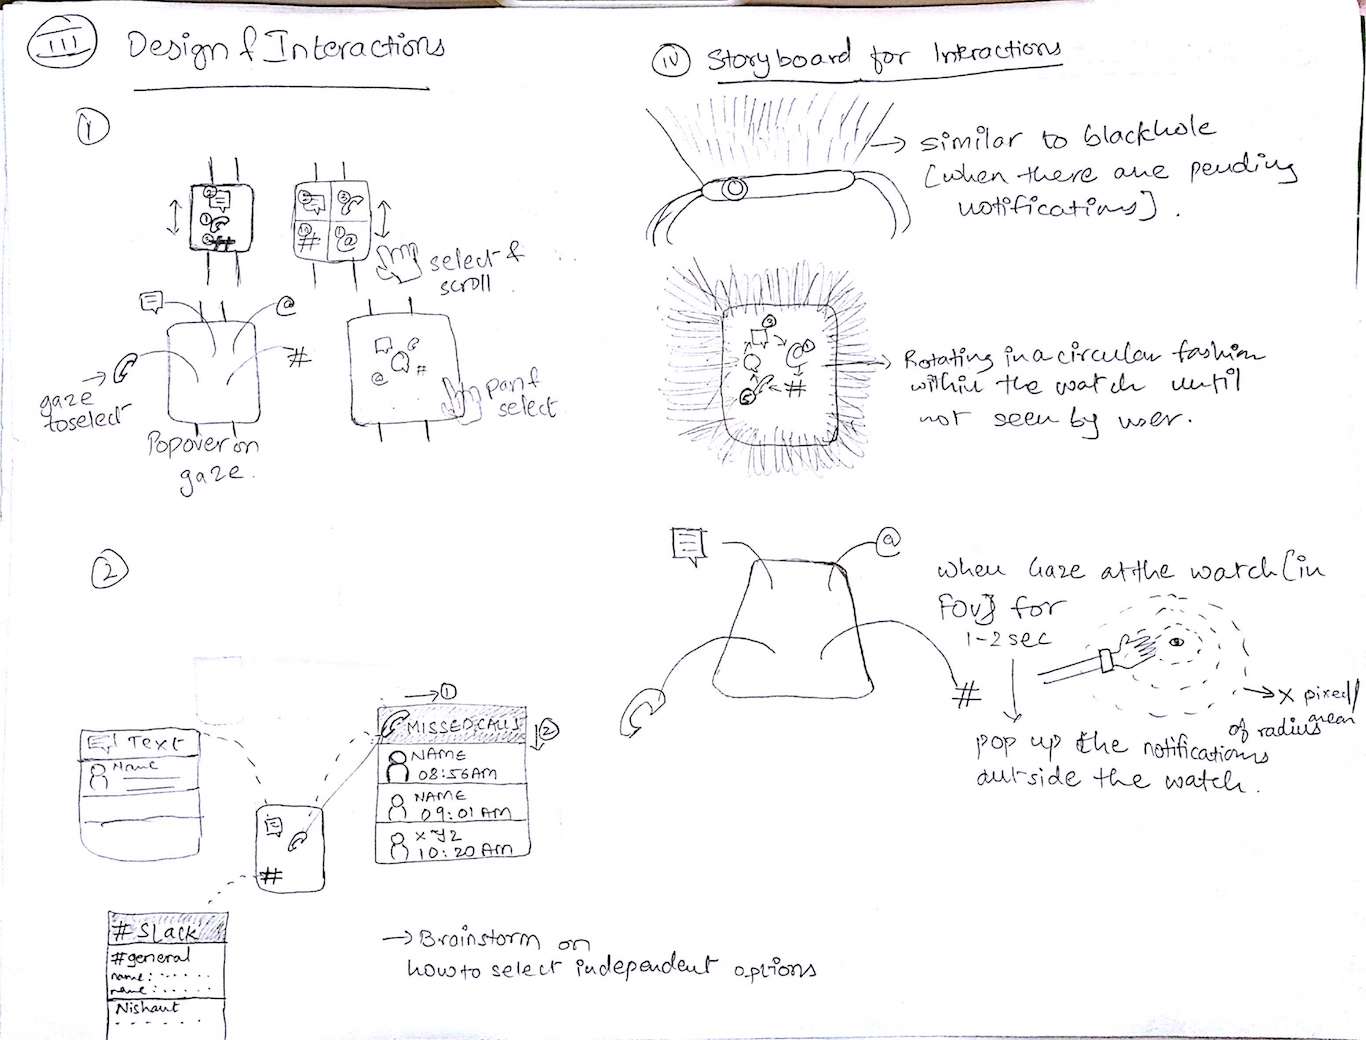 III Design & Interactions
1
2
1
3
#
2
3
10
#
1
@
select &
scroll
@
#
gaze
to select
Popover on
gaze.
@
#
pan &
select
2
→ 1
MISSED CALLS
2
NAME
08:56AM
NAME
09:01AM
XYZ
10:20AM
Text
Name
#
# Slack
#general
name: ......
name: ......
Nishant
......
→ Brainstorm on
how to select independent options
iv Storyboard for Interactions
→ similar to blackhole
[when there are pending
notifications].
@
#
→ Rotating in a circular fashion
within the watch until
not seen by user.
@
#
when Gaze at the watch [in
FOV] for
1-2 sec
→ x pixel/
area
of radius
pop up the notifications
outside the watch.